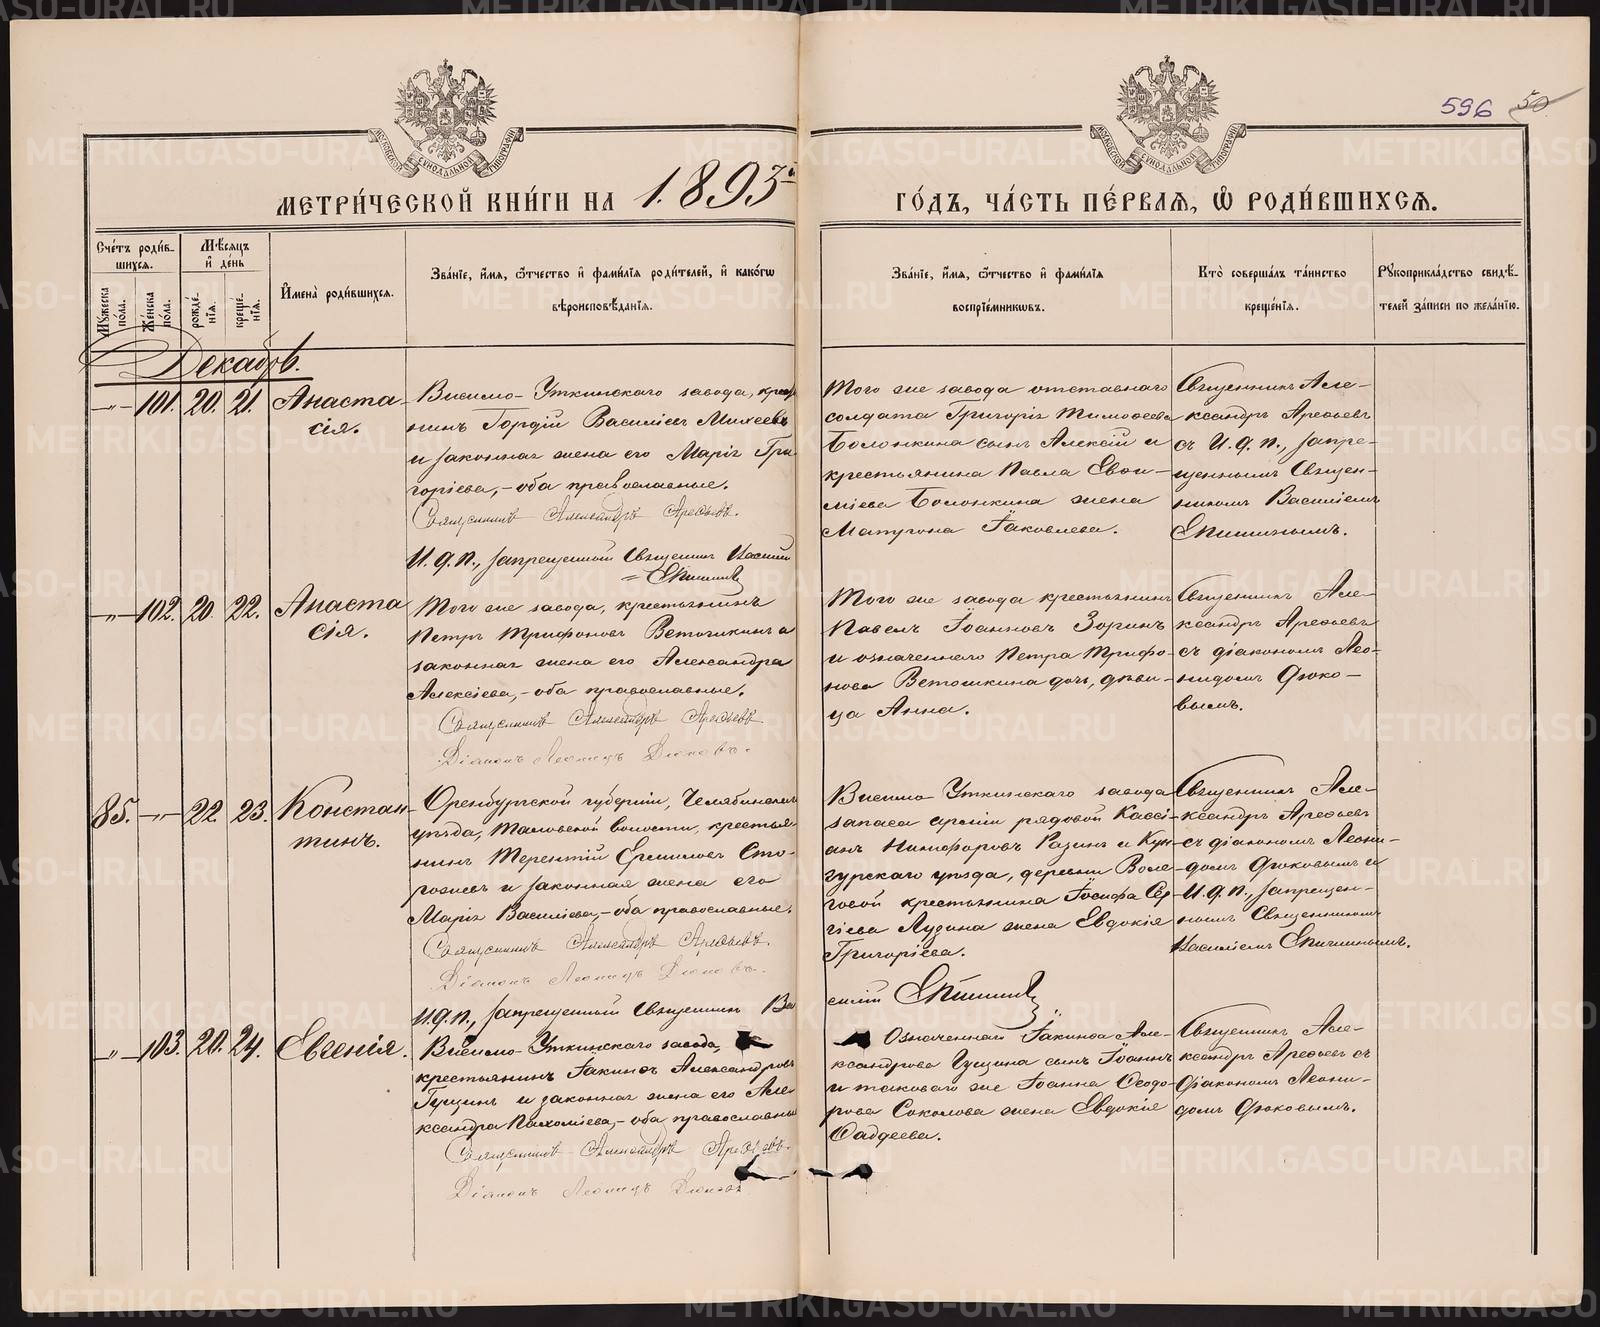 596 50
МЕТРИ́ЧЕСКОЙ КНИ́ГИ НА 1893й
ГО́ДЪ, ЧА́СТЬ ПЕ́РВАЯ, Ѽ РОДИ́ВШИХСЯ.
Сче́тъ роди́в-
шихся.
Мѣ́сяцъ
и҆ де́нь
Му́жеска
по́ла.
Же́нска
по́ла.
рожде́-
нїѧ.
креще́-
нїѧ.
И҆мена̀ роди́вшихся.
Зва́нїе, и҆́мѧ, ѻ҆́тчество и҆ фами́лїѧ роди́телей, и҆ како́гѡ
вѣроисповѣ́данїѧ.
Зва́нїе, и҆́мѧ, ѻ҆́тчество и҆ фами́лїѧ
воспрїе́мниковъ.
Кто̀ соверша́лъ та́инство
креще́нїѧ.
Рꙋкоприкла́дство свидѣ́-
телей за́писи по жела́нїю.
Декабрь.
-"- 101. 20. 21. Анаста-
сія.
Висимо-Уткинскаго завода, крестья
нинъ Гордій Василіевъ Михеевъ
и законная жена его Марія Гри
горіева,- оба православные.
Священникъ Александръ Арефьевъ.
И. д. п., запрещенный Священникъ Василій
= Епишинъ
Того же завода отставнаго
солдата Григорія Тимофеева
Болонкина сынъ Алексій и
крестьянина Павла Евфи-
міева Болонкина жена
Матрона Іаковлева.
Священникъ Але-
ксандръ Арефьевъ
съ И. д. п., запре-
щеннымъ Священ-
никомъ Василіемъ
Епишинымъ.
-"- 102. 20. 22. Анаста
сія.
Того же завода, крестьянинъ
Петръ Трифоновъ Ветошкинъ и
законная жена его Александра
Алексіева,- оба православные.
Священникъ Александръ Арефьевъ
Діаконъ Леонидъ Дюковъ.
Того же завода крестьянинъ
Павелъ Іоанновъ Зоринъ
и означеннаго Петра Трифо-
нова Ветошкина дочь, дѣви-
ца Анна.
Священникъ Але-
ксандръ Арефьевъ
съ діакономъ Лео-
нидомъ Дюко-
вымъ.
85. -"- 22 23. Констан-
тинъ.
Оренбургской губерніи, Челябинскаго
уѣзда, Таловской волости, крестья-
нинъ Терентій Ермиловъ Сто-
рожевъ и законная жена его
Марія Василіева,- оба православные.
Священникъ Александръ Арефьевъ.
Діаконъ Леонидъ Дюковъ.
И. д. п., запрещенный Священникъ Ва
Висимо-Уткинскаго завода
запаса арміи рядовой Кассі-
анъ Никифоровъ Разинъ и Кун-
гурскаго уѣзда, деревни Воле-
говой крестьянина Іосифа Сер-
гіева Лузина жена Евдокія
Григоріева.
силій Епишинъ
Священникъ Але-
ксандръ Арефьевъ
съ діакономъ Леони-
домъ Дюковымъ и
И. д. п., запрещен-
нымъ Священникомъ
Василіемъ Епишинымъ.
-"- 103. 20. 24. Евгенія.
Висимо-Уткинскаго завода,
крестьянинъ Іакинфъ Александровъ
Гущинъ и законная жена его Але-
ксандра Пахоміева,- оба православные
Священникъ Александръ Арефьевъ.
Діаконъ Леонидъ Дюковъ
Означеннаго Іакинфа Але-
ксандрова Гущина сынъ Іоаннъ
и таковаго же Іоанна Ѳеодо-
рова Соколова жена Евдокія
Ѳаддеева.
Священникъ Але-
ксандръ Арефьевъ съ
діакономъ Леони-
домъ Дюковымъ.
METRIKI.GASO-URAL.RU